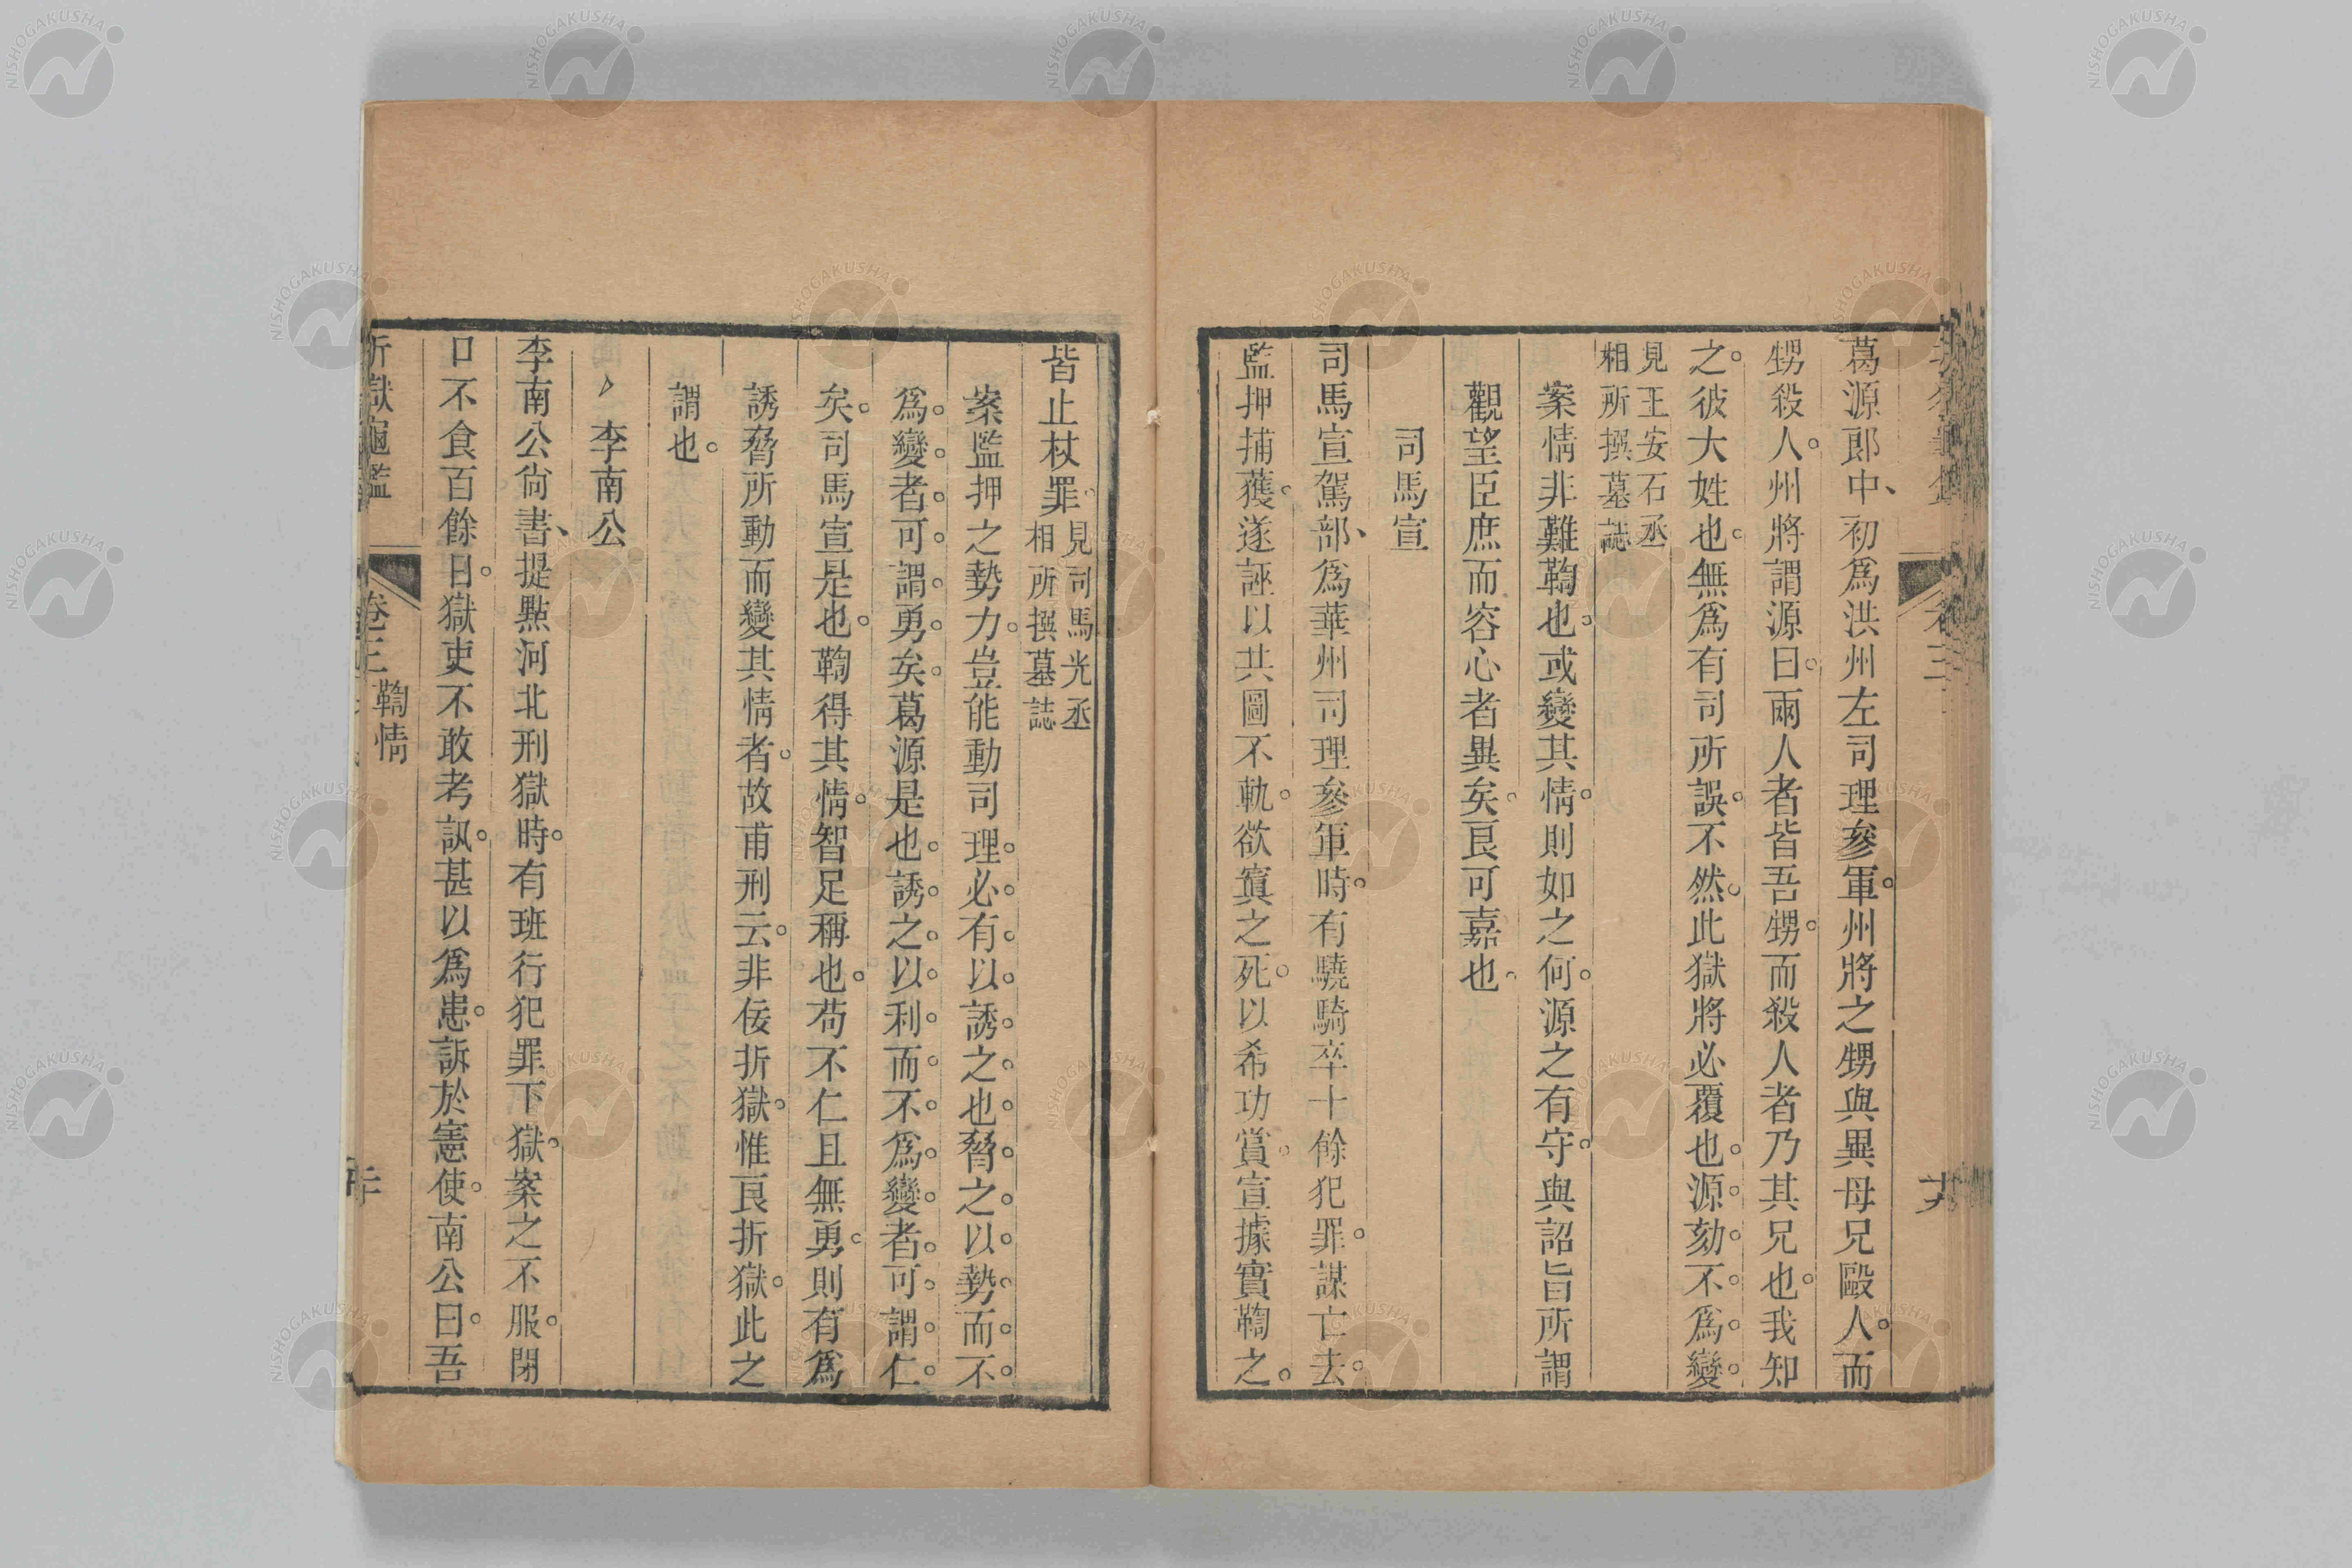 葛源郎中、初爲洪州左司理參軍。州將之甥與異母兄毆人。而
甥殺人。州將謂源曰。兩人者皆吾甥。而殺人者乃其兄也。我知
之。彼大姓也。無爲有司所誤。不然。此獄將必覆也。源。劾。不。爲。變。
見王安石丞
相所撰墓誌
案情非難鞫也。或變其情。則如之何。源之有守。與詔旨所謂
觀望臣庶而容心者異矣。良可嘉也。
司馬宣
司馬宣駕部、爲華州司理參軍時。有驍騎卒十餘犯罪。謀亡去。
監押捕獲。遂誣以共圖不軌。欲寘之死。以希功賞。宣據實鞫之。
皆止杖罪。
見司馬光丞
相所撰墓誌
案監押之勢力。豈能動司理。必。有。以。誘。之。也。脅。之。以。勢。而。不。
爲。變。者。可。謂。勇。矣。葛源是也。誘。之。以。利。而。不。爲。變。者。可。謂。仁。
矣。司馬宣是也。鞫得其情。智足稱也。苟不仁且無勇。則有爲
誘脅所動而變其情者。故甫刑云。非佞折獄。惟良折獄。此之
謂也。
李南公
李南公尙書、提點河北刑獄時。有班行犯罪下獄。案之不服。閉
口不食百餘日。獄吏不敢考訊。甚以爲患。訴於憲使。南公曰。吾
折獄龜鑑 卷三 鞫情 二十